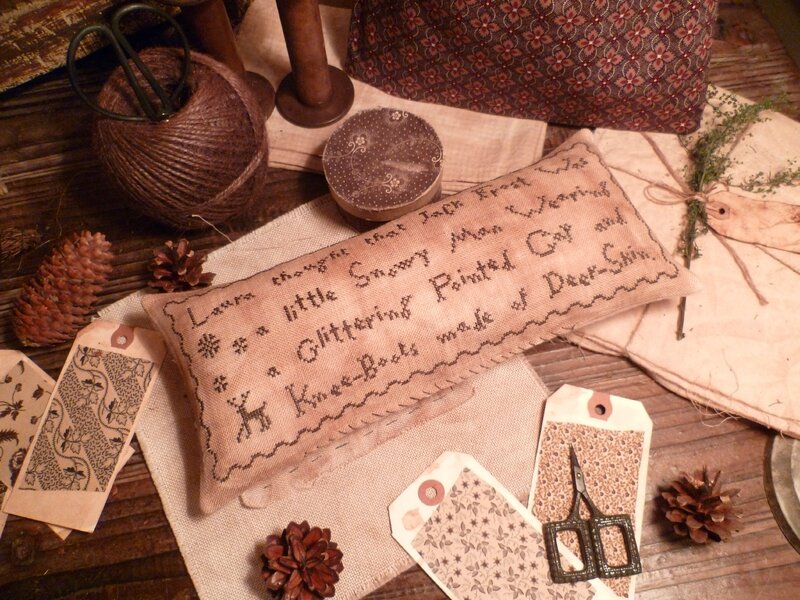 Laura thought that Jack Frost Was
a little Snowy Man Wearing
a Glittering Pointed Cap and
Knee-Boots made of Deer-Skin.